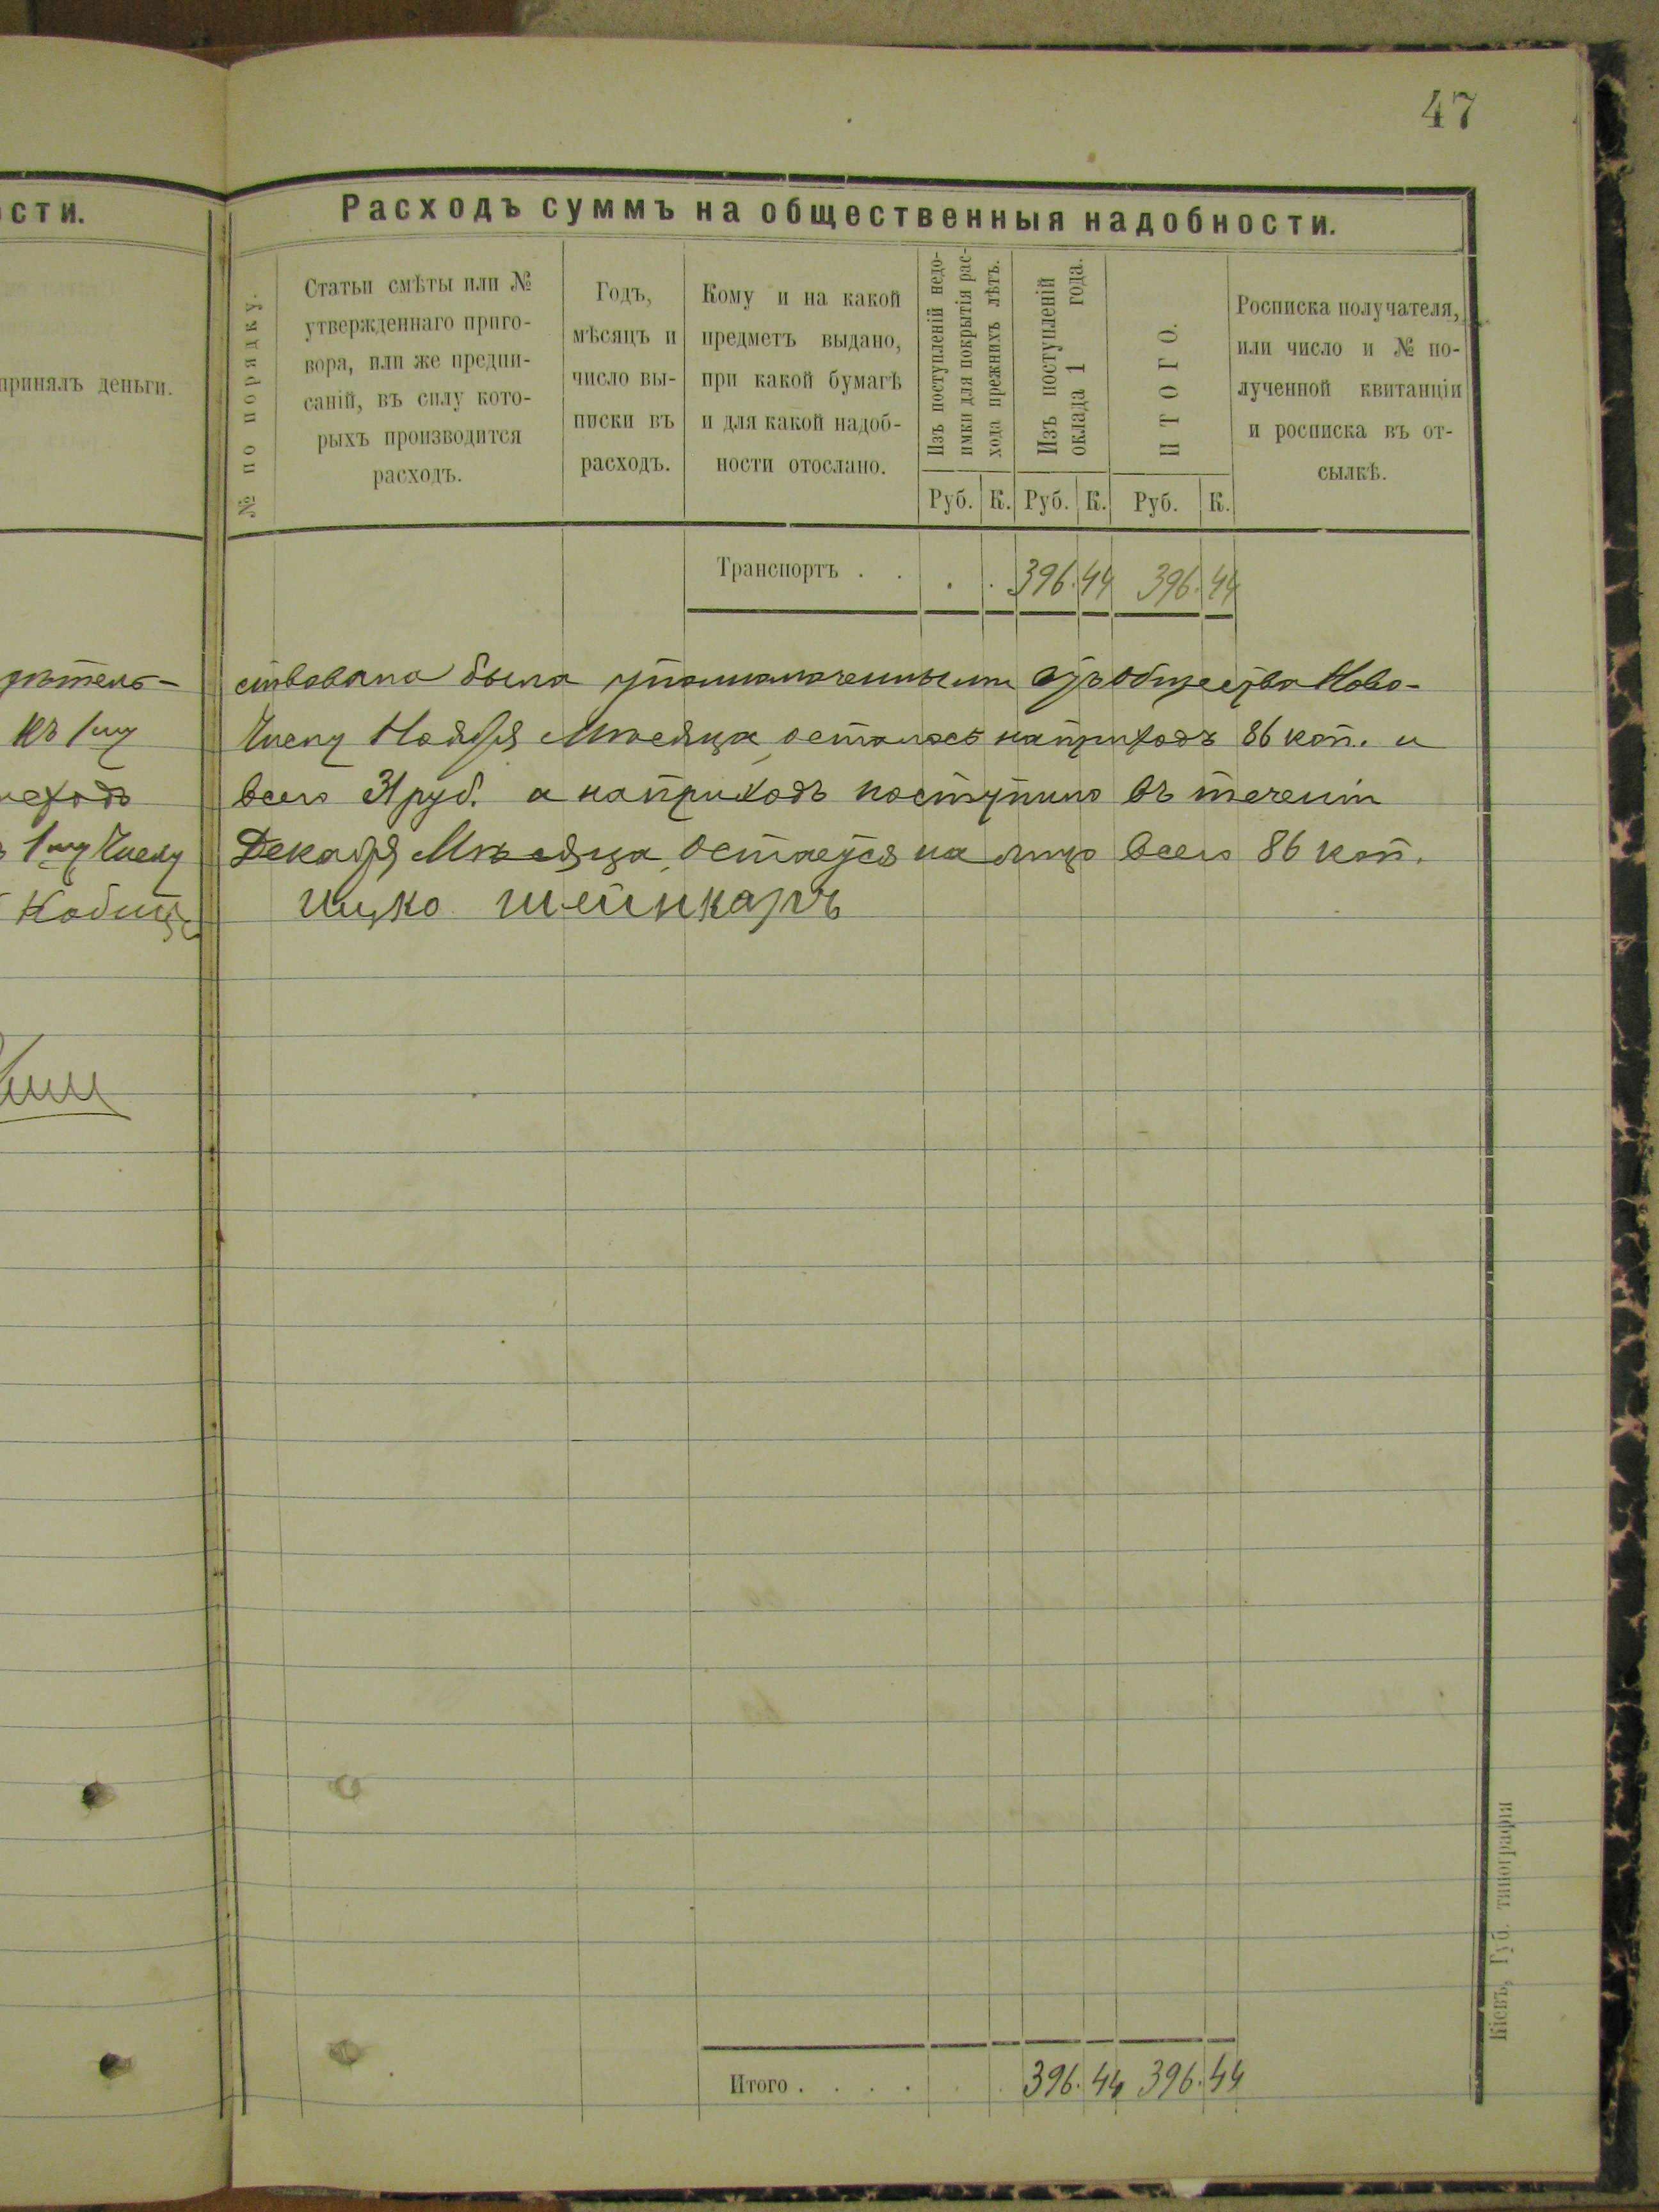 47
ости.
принялъ деньги.
Расходъ суммъ на общественныя надобности.
№ по порядку.
Статьи смѣты или №
утвержденнаго приго-
вора, или же предпи-
саній, въ силу кото-
рыхъ производится
расходъ.
Годъ,
мѣсяцъ и
число вы-
писки въ
расходъ.
Кому и на какой
предметъ выдано,
при какой бумагѣ
и для какой надоб-
ности отослано.
Изъ поступленій недо-
имки для покрытія рас-
хода прежнихъ лѣтъ.
Изъ поступленій
оклада 1 года.
ИТОГО.
Росписка получателя,
или число и № по-
лученной квитанціи
и росписка въ от-
сылкѣ.
Руб. К. Руб. К. Руб. К.
Транспортъ . . . . 396. 44 396. 44
ствована была общества Ново-
къ 1му
Числу Ноября Мѣсяца осталось на приходъ 86 коп. и
всего 31 руб. а на приходъ поступило въ теченіи
1му Числу
Декабря Мѣсяца, остается на лицо всего 86 коп.
Ицко Шейнкаръ
Итого . . . . . . 396. 44 396. 44
Кіевъ, Губ. типографія